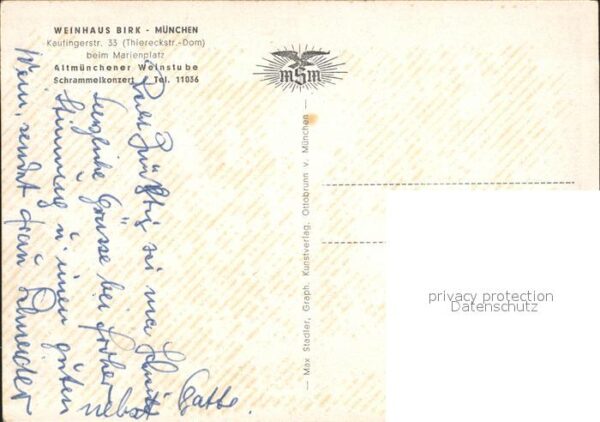 WEINHAUS BIRK - MÜNCHEN
Kaufingerstr. 33 (Thiereckstr.-Dom)
beim Marienplatz
Altmünchener Weinstube
Schrammelkonzert Tel. 11036
mSm
— Max Stadler, Graph. Kunstverlag, Ottobrunn v. München —
herzliche Grüsse bei froher
Stimmung u. einen guten
Wein, sendet Frau Schneider
nebst Gatte.
privacy protection
Datenschutz